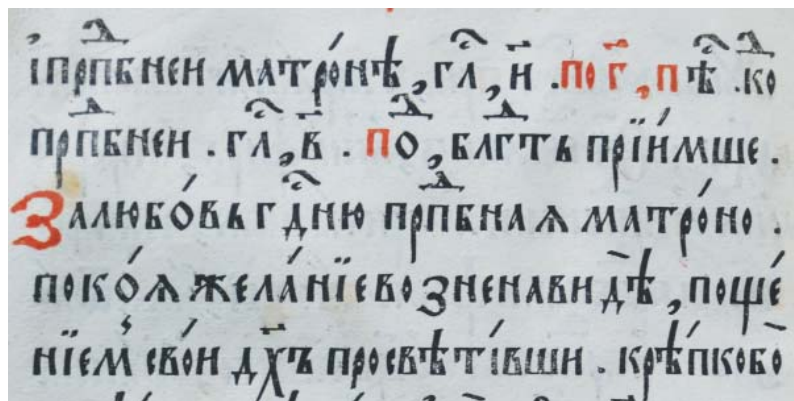 і҆прⷣпбнеи матро́нѣ , гл҃ , и҃ . по г҃ , пⷭ҇ѣ . коⷣ
прⷣпбнеи . гл҃ , в҃ . поⷣ , блгⷣть прїи́мше .
Залюбо́вь гдⷭ҇ню прⷣпбнаѧ матро́но .
поко́ѧ жела́нїе возненавидѣ , поще́
нїем̾ сво́и дх҃ъ просвѣти́вши . крѣ́пкобо